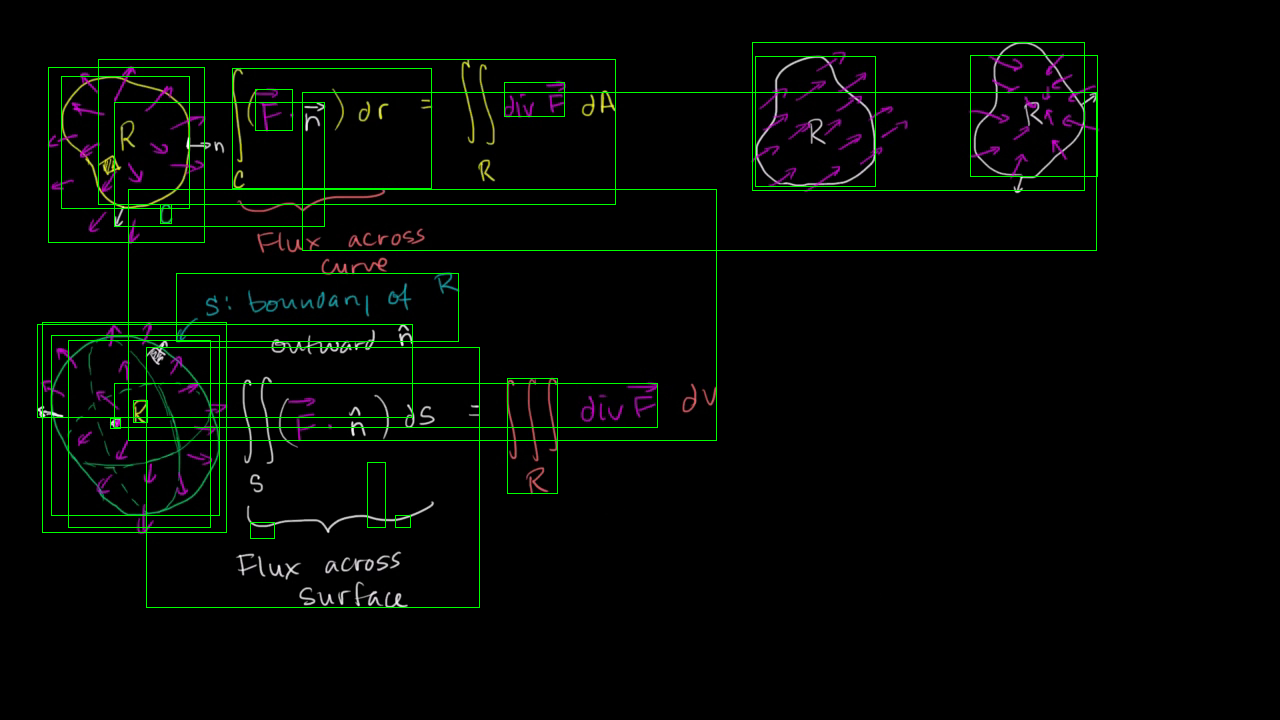 ∫_C (F⃗ · n⃗) dr = ∬_R div F⃗ dA
R
n
R
R
Flux across
curve
S: boundary of R
outward n̂
R
∬_S (F⃗ · n̂) dS = ∭_R div F⃗ dV
Flux across
surface